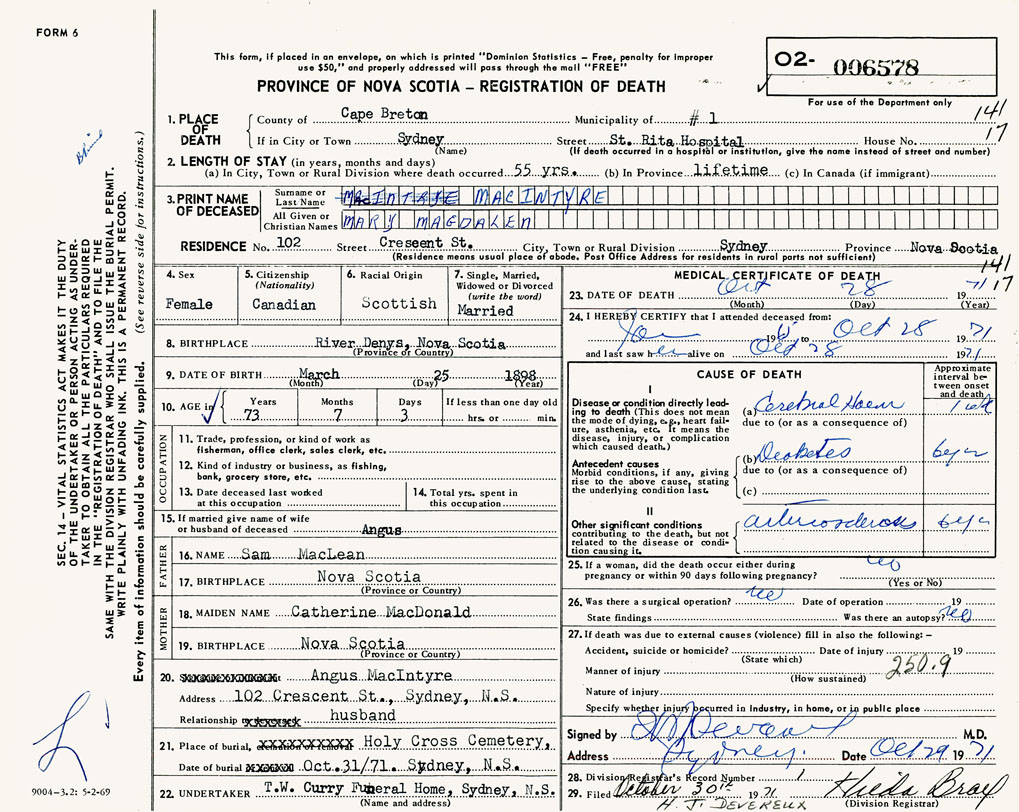 FORM 6
This form, if placed in an envelope, on which is printed "Dominion Statistics – Free, penalty for improper
use $50," and properly addressed will pass through the mail "FREE"
PROVINCE OF NOVA SCOTIA – REGISTRATION OF DEATH
02- 006578
For use of the Department only
141
17
1. PLACE OF DEATH
County of Cape Breton Municipality of # 1
If in City or Town Sydney Street St. Rita Hospital House No.
(Name) (If death occurred in a hospital or institution, give the name instead of street and number)
2. LENGTH OF STAY (in years, months and days)
(a) In City, Town or Rural Division where death occurred 55 yrs. (b) In Province lifetime (c) In Canada (if immigrant)
3. PRINT NAME OF DECEASED
Surname or Last Name MACINTYRE
All Given or Christian Names MARY MAGDALEN
RESIDENCE No. 102 Street Cresent St. City, Town or Rural Division Sydney Province Nova Scotia
(Residence means usual place of abode. Post Office Address for residents in rural parts not sufficient)
4. Sex
Female
5. Citizenship
(Nationality)
Canadian
6. Racial Origin
Scottish
7. Single, Married,
Widowed or Divorced
(write the word)
Married
8. BIRTHPLACE River Denys, Nova Scotia
(Province or Country)
9. DATE OF BIRTH March 25 1898
(Month) (Day) (Year)
10. AGE in
Years Months Days If less than one day old
73 7 3 hrs. or min.
OCCUPATION
11. Trade, profession, or kind of work as
fisherman, office clerk, sales clerk, etc.
12. Kind of industry or business, as fishing,
bank, grocery store, etc.
13. Date deceased last worked
at this occupation
14. Total yrs. spent in
this occupation
15. If married give name of wife
or husband of deceased Angus
FATHER
16. NAME Sam MacLean
17. BIRTHPLACE Nova Scotia
(Province or Country)
MOTHER
18. MAIDEN NAME Catherine MacDonald
19. BIRTHPLACE Nova Scotia
(Province or Country)
20. Angus MacIntyre
Address 102 Crescent St., Sydney, N.S.
Relationship husband
21. Place of burial, Holy Cross Cemetery,
Date of burial Oct.31/71. Sydney, N.S.
22. UNDERTAKER T.W. Curry Funeral Home, Sydney, N.S.
(Name and address)
MEDICAL CERTIFICATE OF DEATH
141
17
23. DATE OF DEATH Oct 28 1971
(Month) (Day) (Year)
24. I HEREBY CERTIFY that I attended deceased from:
Jan 196 to Oct 28 1971
and last saw her alive on Oct 28 1971
CAUSE OF DEATH
Approximate
interval be-
tween onset
and death
I
Disease or condition directly lead-
ing to death (This does not mean
the mode of dying, e.g., heart fail-
ure, asthenia, etc. It means the
disease, injury, or complication
which caused death.)
(a) Cerebral Haem 1 wk
due to (or as a consequence of)
Antecedent causes
Morbid conditions, if any, giving
rise to the above cause, stating
the underlying condition last.
(b) Diabetes 6 yr
due to (or as a consequence of)
(c)
II
Other significant conditions
contributing to the death, but not
related to the disease or condi-
tion causing it.
arteriosclerosis 6 yr
25. If a woman, did the death occur either during
pregnancy or within 90 days following pregnancy? no
(Yes or No)
26. Was there a surgical operation? no Date of operation 19
State findings Was there an autopsy? no
27. If death was due to external causes (violence) fill in also the following: –
Accident, suicide or homicide? Date of injury 19
(State which)
Manner of injury 250.9
(How sustained)
Nature of injury
Specify whether injury occurred in industry, in home, or in public place
Signed by M.D.
Address Sydney. Date Oct 29 1971
28. Division Registrar's Record Number 1
29. Filed October 30th 1971 Hilda Bray
H. J. DEVEREUX (Division Registrar)
SEC. 14 – VITAL STATISTICS ACT MAKES IT THE DUTY
OF THE UNDERTAKER OR PERSON ACTING AS UNDER-
TAKER TO OBTAIN ALL THE PARTICULARS REQUIRED
IN THE "REGISTRATION OF DEATH" AND TO FILE THE
SAME WITH THE DIVISION REGISTRAR WHO SHALL ISSUE THE BURIAL PERMIT.
WRITE PLAINLY WITH UNFADING INK. THIS IS A PERMANENT RECORD.
Every item of information should be carefully supplied. (See reverse side for instructions.)
9004-3.2: 5-2-69